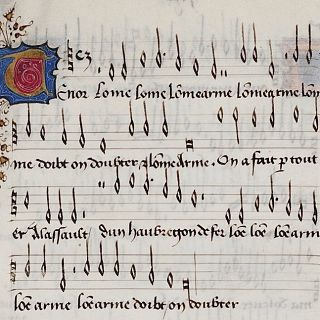 Tenor Lome lome lõme arme lõme arme lõm
me doibt on doubter Alome Arme. On a fait p tout
er Alassault Dun haubregon de fer loẽ loẽ loẽ arm
loẽ arme loẽ arme doibt on doubter